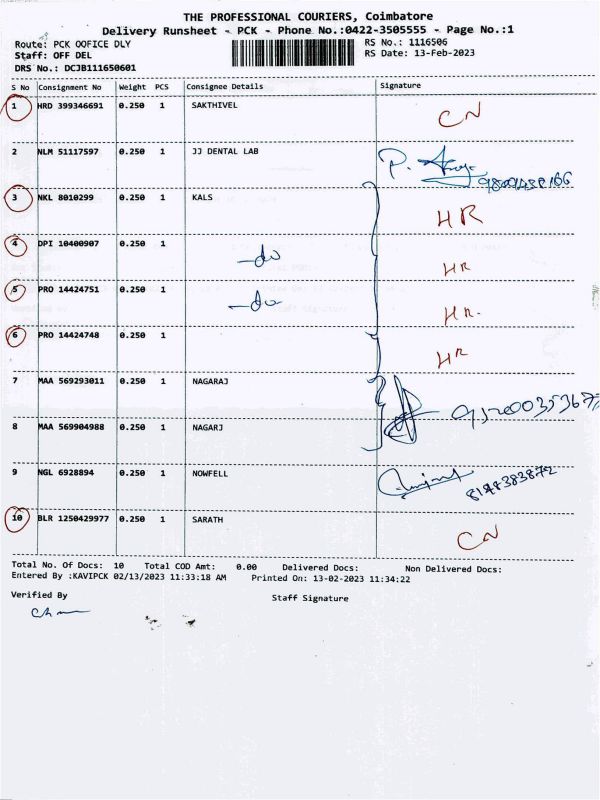 THE PROFESSIONAL COURIERS, Coimbatore
Delivery Runsheet - PCK - Phone No.:0422-3505555 - Page No.:1
Route: PCK OOFICE DLY RS No.: 1116506
Staff: OFF DEL RS Date: 13-Feb-2023
DRS No.: DCJB111650601
S No Consignment No Weight PCS Consignee Details Signature
1 HRD 399346691 0.250 1 SAKTHIVEL CN
2 NLM 51117597 0.250 1 JJ DENTAL LAB P.
3 NKL 8010299 0.250 1 KALS HR
4 DPI 10400907 0.250 1 -do HR
5 PRO 14424751 0.250 1 -do HR.
6 PRO 14424748 0.250 1 HR
7 MAA 569293011 0.250 1 NAGARAJ
8 MAA 569904988 0.250 1 NAGARJ
9 NGL 6928894 0.250 1 NOWFELL
10 BLR 1250429977 0.250 1 SARATH CN
Total No. Of Docs: 10 Total COD Amt: 0.00 Delivered Docs: Non Delivered Docs:
Entered By :KAVIPCK 02/13/2023 11:33:18 AM Printed On: 13-02-2023 11:34:22
Verified By Staff Signature